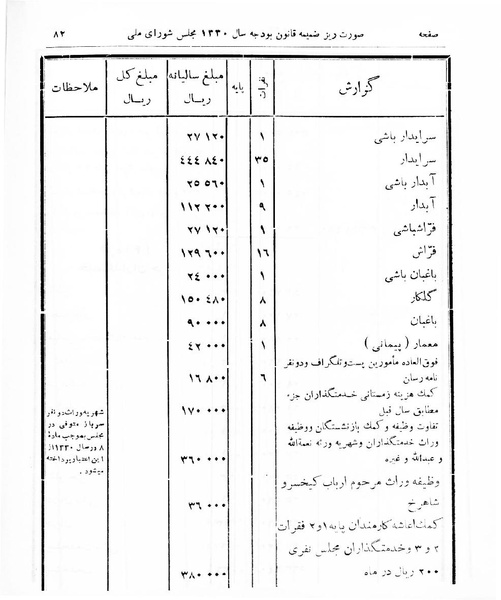 صفحه صورت ریز ضمیمه قانون بودجه سال ۱۳۳۰ مجلس شورای ملی ۸۲
گزارش نفرات پایه مبلغ سالیانه ریال مبلغ کل ریال ملاحظات
سرایدار باشی ۱ ۲۷ ۱۲۰
سرایدار ۳۵ ٤٤٤ ۸٤۰
آبدار باشی ۱ ۲۵ ۵۶۰
آبدار ۹ ۱۱۲ ۲۰۰
فراشباشی ۱ ۲۷ ۱۲۰
فراش ۱۶ ۱۲۹ ۶۰۰
باغبان باشی ۱ ۲٤ ۰۰۰
گلکار ۸ ۱۵۰ ٤۸۰
باغبان ۸ ۹۰ ۰۰۰
معمار ( پیمانی ) ۱ ٤۲ ۰۰۰
فوق العاده مأمورین پست و تلگراف و دو نفر
نامه رسان ۶ ۱۶ ۸۰۰
کمک هزینه زمستانی خدمتگذاران جزء
مطابق سال قبل ۱۷۰ ۰۰۰
تفاوت وظیفه و کمک بازنشستگان و وظیفه
وراث خدمتگذاران و شهریه ورثه نعمةالله
و عبدالله و غیره ۳۶۰ ۰۰۰
وظیفه وراث مرحوم ارباب کیخسرو
شاهرخ ۳۶ ۰۰۰
کمک اعاشه کارمندان پایه ۱ و ۲ فقرات
۲ و ۳ و خدمتگذاران مجلس نفری
۲۰۰ ریال در ماه ۳۸۰ ۰۰۰
شهریه وراث دو نفر
سرباز متوفی در
مجلس بموجب ماده
۸ و رسال ۱۳۳۰ از
این اعتبار پرداخته
میشود .